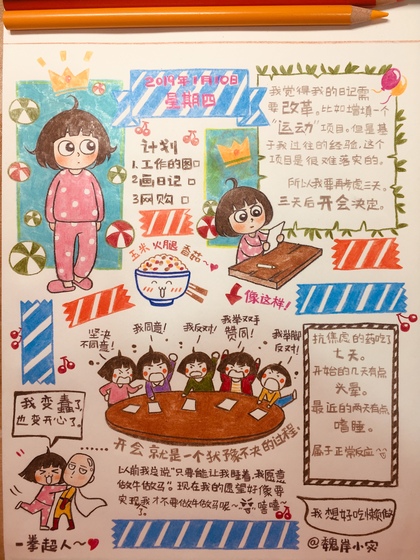 2019年1月10日
星期四
我觉得我的日记需
要改革。比如增填一个
“运动”项目。但是基
于我过往的经验,这个
项目是很难落实的。
所以我要再考虑三天。
三天后开会决定。
计划
1.工作的图
2.画日记
3.网购
玉米 火腿 香菇~
像这样!
坚决
不同意!
我同意!
我反对!
我举双手
赞同!
我举脚
反对!
抗焦虑的药吃了
七天。
开始的几天有点
头晕。
最近的两天有点
嗜睡。
属于正常反应
我变蠢了,
也变开心了。
开会就是一个犹豫不决的过程。
以前我总说“只要能让我睡着,我愿意
做牛做马”。现在我的愿望好像要
实现了。我才不要做牛做马呢~ 哞~ 嘻嘻~
我想好吃懒做
一拳超人~
@魏岸小安